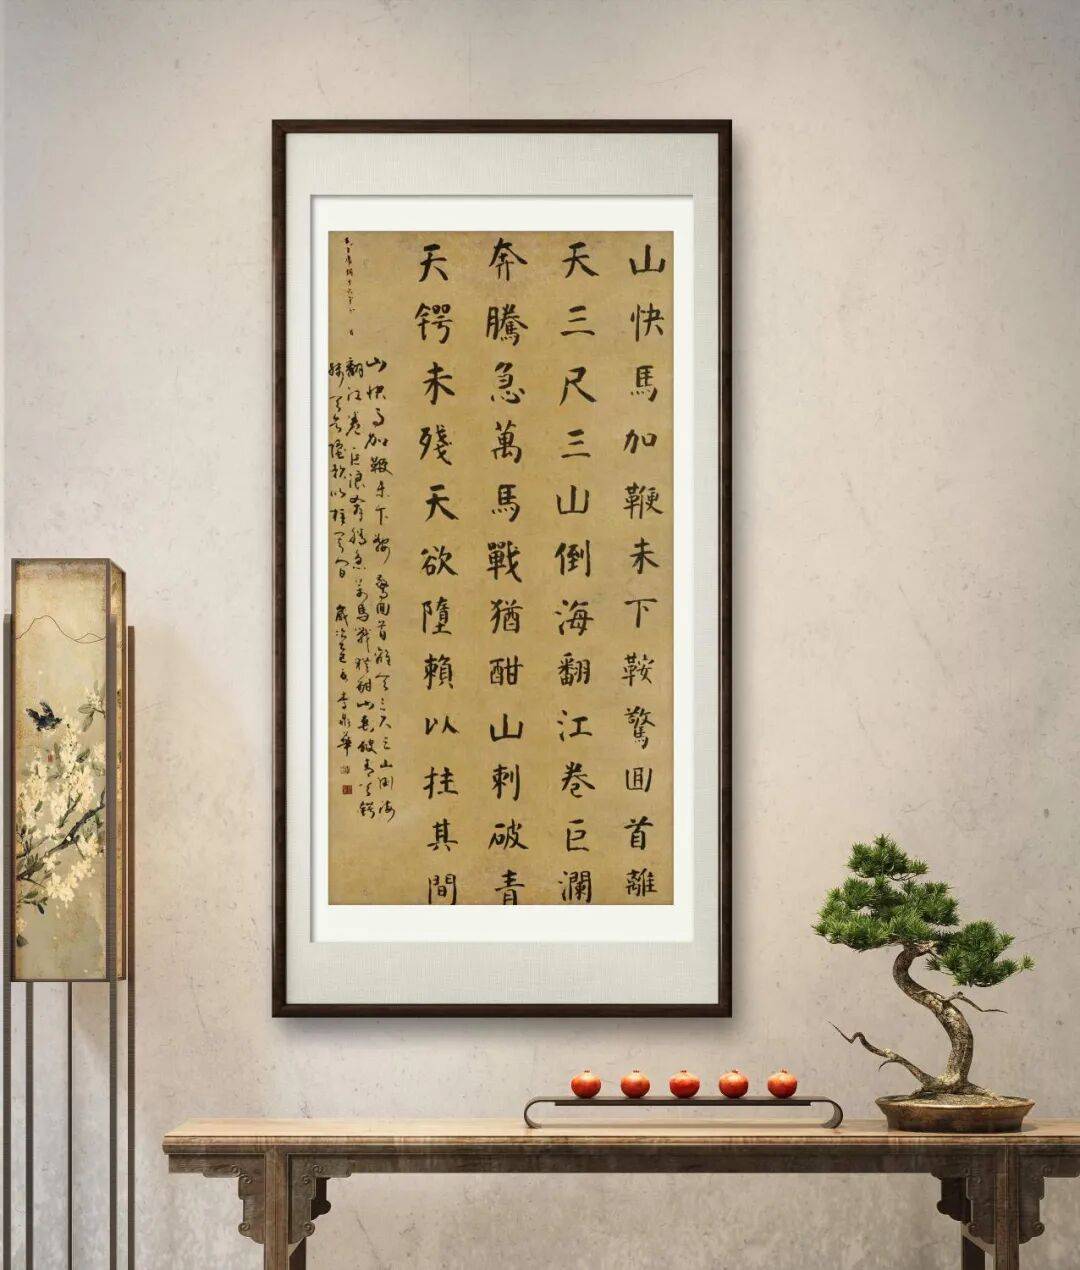 山快馬加鞭未下鞍驚囬首離
天三尺三山倒海翻江卷巨瀾
奔騰急萬馬戰猶酣山刺破青
天锷未殘天欲墮賴以拄其間
山快馬加鞭未下鞍驚囬首離天三尺三山倒海
翻江卷巨奔騰急萬馬戰猶酣山破青天锷
殘天欲墮賴以其間 歲次